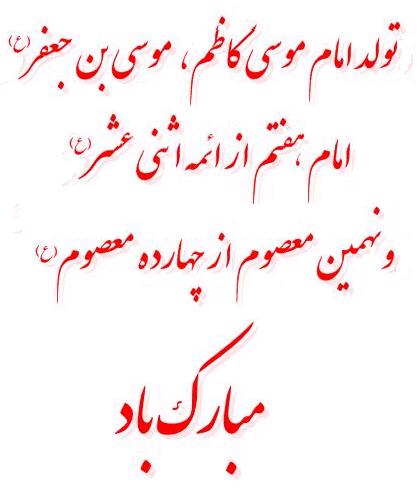 تولد امام موسی کاظم، موسی بن جعفر (ع)
امام هفتم از ائمه اثنی عشر (ع)
و نهمین معصوم از چهارده معصوم (ع)
مبارک باد